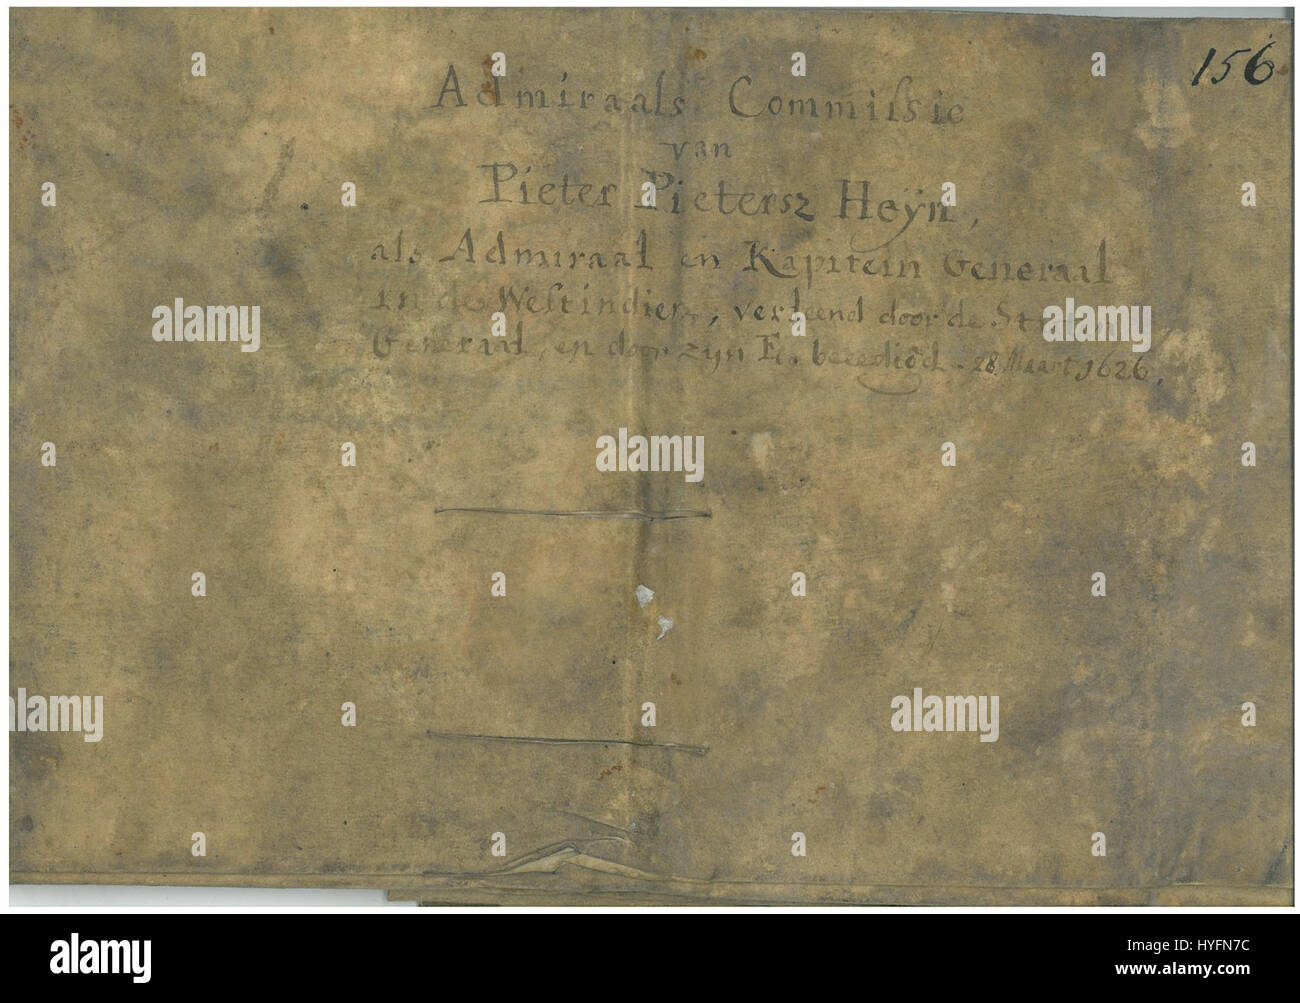 156
Admiraals Commissie
van
Pieter Pietersz Heÿn,
als Admiraal en Kapitein Generaal
in de Westindien, verleend door de Staten
Generaal, en door zyn E. beeedigd. 28 Maart 1626.
alamy
alamy
Image ID: HYFN7C
www.alamy.com